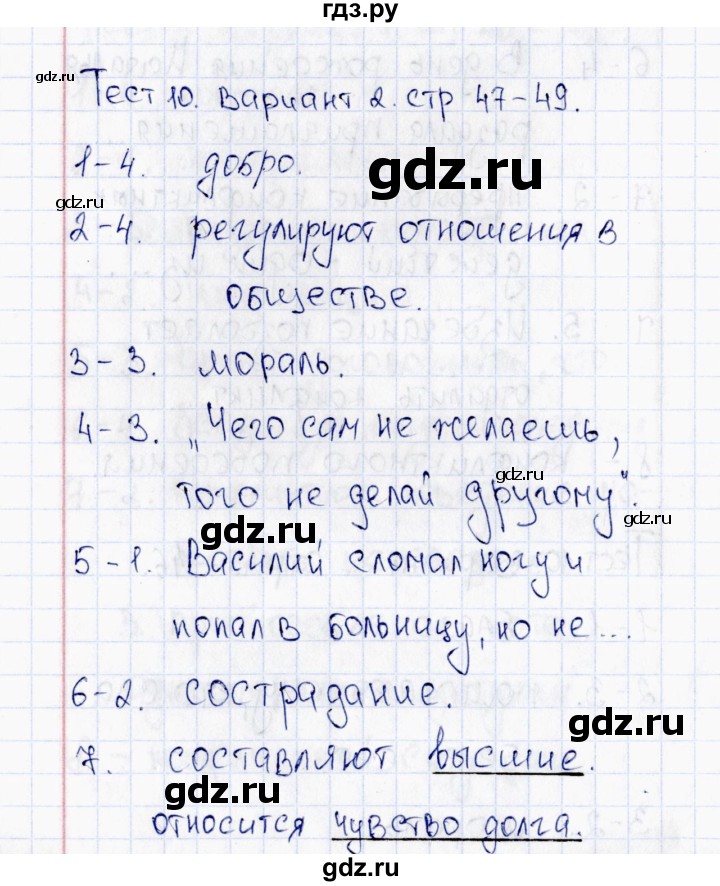 гдз.ру
gdz.ru
Тест 10. Вариант 2. стр 47-49.
1-4. добро.
gdz.ru
gdz.ru
2-4. регулируют отношения в
обществе.
3-3. мораль.
4-3. „Чего сам не желаешь,
gdz.ru
того не делай другому".
gdz.ru
5-1. Василий сломал ногу и
попал в больницу, но не...
6-2. сострадание.
gdz.ru
7. составляют высшие.
gdz.ru
относится чувство долга.
gdz.ru